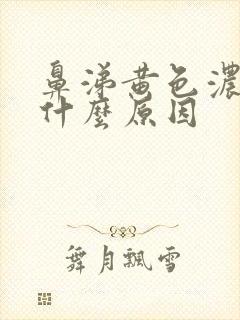 鼻涕黄色濃
什麼原因
舞月飄雪